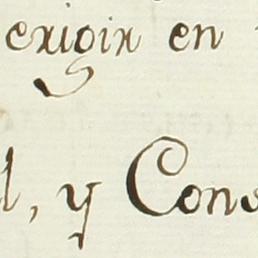 exigir en
l, y Cons